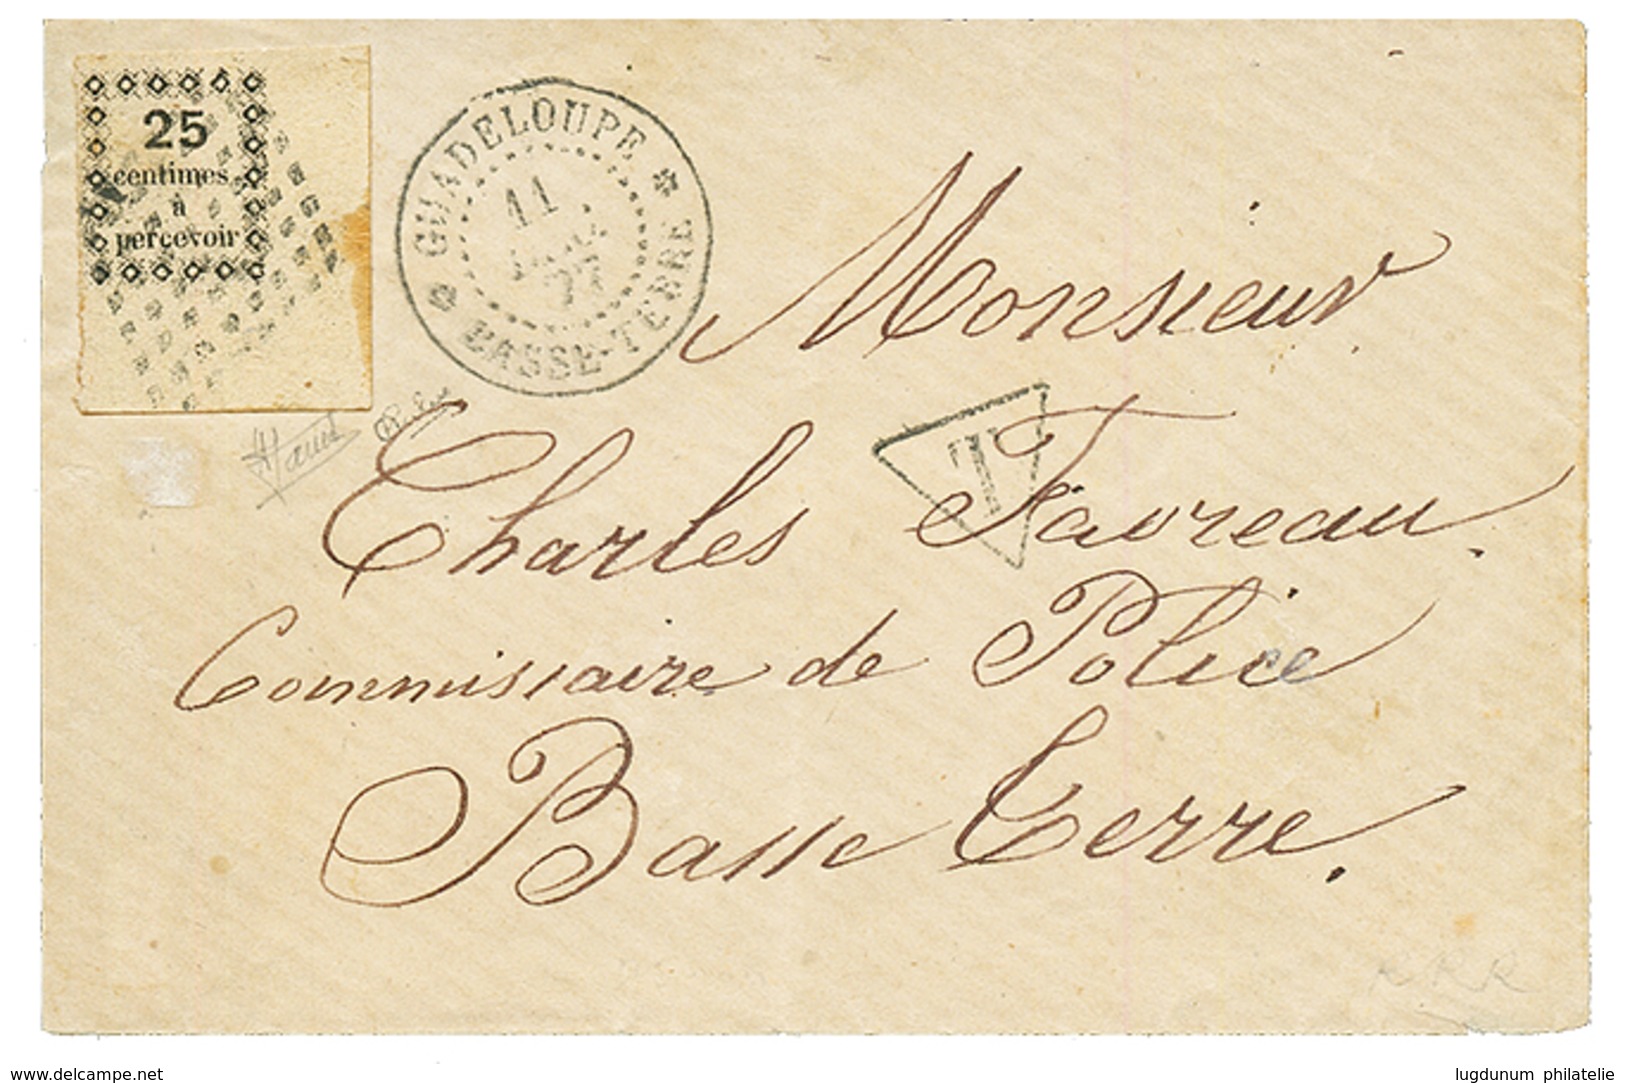 25
centimes
à
percevoir
GUADELOUPE
11
77
BASSE-TERRE
T
Monsieur
Charles Favreau.
Commissaire de Police
Basse Terre.
R R R
www.delcampe.net
lugdunum philatelie